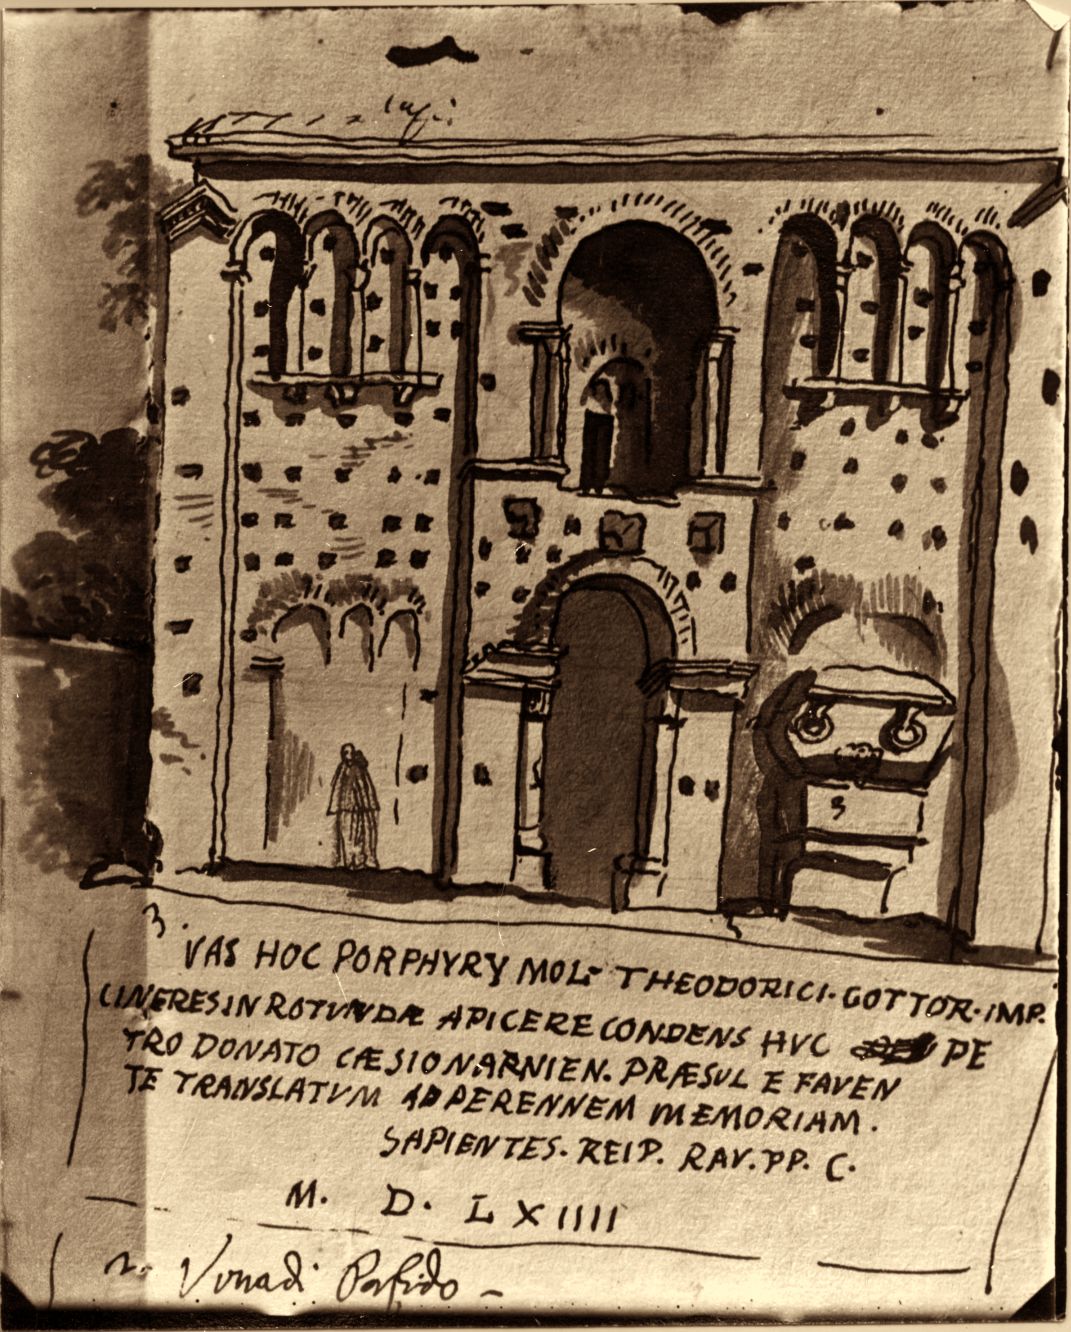 3
3.
VAS HOC PORPHYRY MOL- THEODORICI. GOTTOR. IMP.
CINERES IN ROTVNDÆ APICE RECONDENS HVC PE
TRO DONATO CÆSIO NARNIEN. PRÆSUL E FAVEN
TE TRANSLATVM AD PERENNEM MEMORIAM.
SAPIENTES. REIP. RAV. PP. C.
M. D. L X IIII
Vna di Porfido -